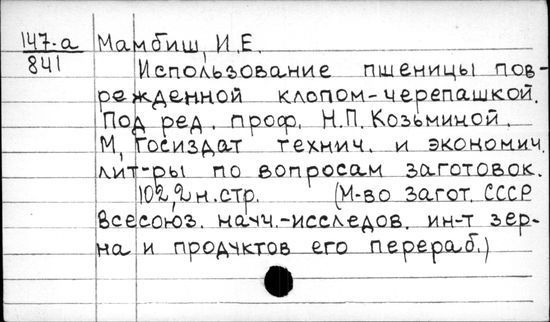 147-а Мамбиш, И.Е.
841
Использование пшеницы пов-
режденной клопом-черепашкой.
Под ред. проф. Н.П. Козьминой.
М, Госиздат технич. и экономич.
лит-ры по вопросам заготовок.
102,2н.стр. (М-во загот. СССР
Всесоюз. научн.-исследов. ин-т зер-
на и продуктов его перераб.)